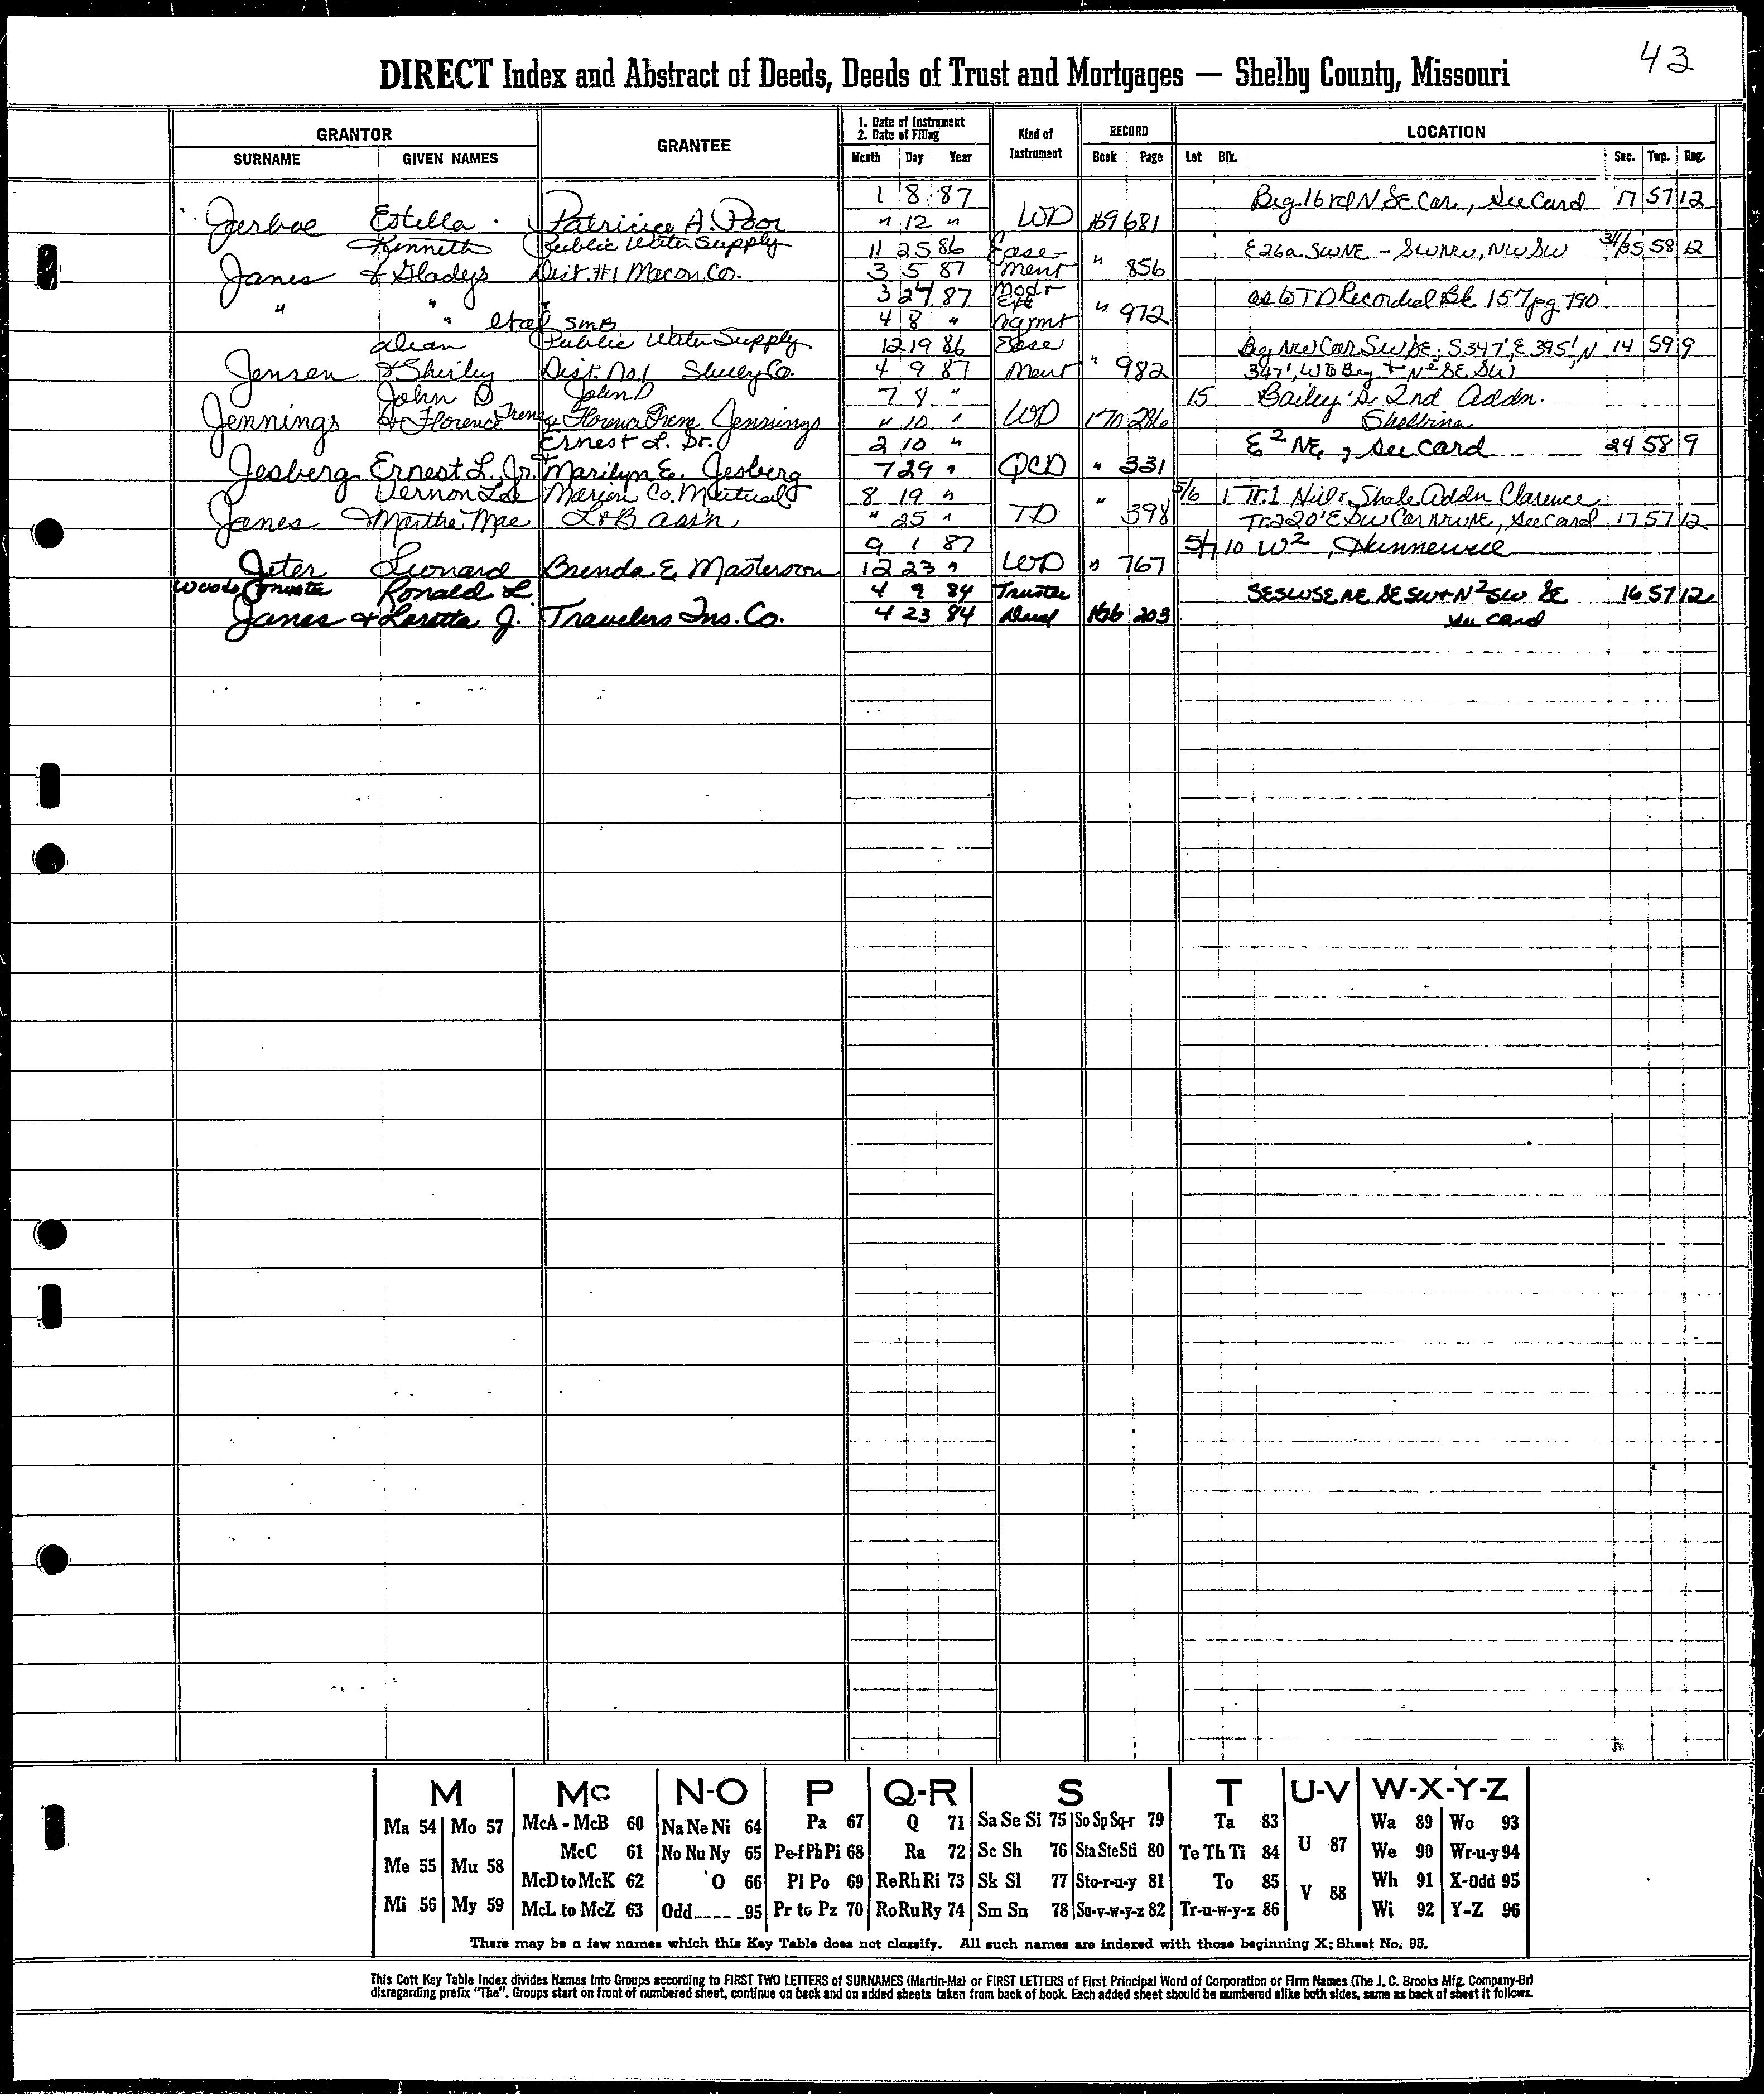 43
DIRECT Index and Abstract of Deeds, Deeds of Trust and Mortgages — Shelby County, Missouri
GRANTOR GRANTEE 1. Date of Instrument 2. Date of Filing Kind of Instrument RECORD LOCATION
SURNAME GIVEN NAMES Month Day Year Book Page Lot Blk. Sec. Twp. Rng.
1 8 87 Beg. 16 rd N SE Cor., See Card 17 57 12
Jerboe Estella Patricia A. Poor " 12 " WD 169 681
Kenneth Public Water Supply 11 25 86 Ease- E26a SWNE - SWNW, NWSW 34/35 58 12
Janes & Gladys Dist. #1 Macon Co. 3 5 87 ment " 856
3 27 87 Mod & Ext as to TD Recorded Bk 157 pg 790
" " etal SMB 4 8 " Agrmt " 972
Dean Public Water Supply 12 19 86 Ease Beg NW Cor SWSE; S347', E 395', N 14 59 9
Jensen & Shirley Dist. No. 1 Shelby Co. 4 9 87 ment " 982 347', W to Beg. + N² SE SW
John D John D 7 8 " 15 Bailey's 2nd Addn.
Jennings & Florence Irene & Florence Irene Jennings " 10 " WD 170 286 Shelbina
Ernest L. Sr. 2 10 " E² NE, See Card 24 58 9
Jesberg Ernest L. Jr. & Marilyn E. Jesberg 7 29 " QCD " 331
Vernon Lee Marion Co. Mutual 8 19 " 5/6 1 Tr. 1 Shale Addn Clarence
Janes & Martha Mae L & B ass'n " 25 " TD " 398 Tr. 2 20' E SW Cor NWNE, See Card 17 57 12
9 1 87 5/7 10 W², Hunnewell
Jeter Leonard Brenda E. Masterson 12 23 " WD " 767
Woods Trustee Ronald L. 4 9 84 Trustee SESWSENE SESW+N² SW SE 16 57 12
Janes & Loretta J. Travelers Ins. Co. 4 23 84 Deed 166 203 See card
M Mc N-O P Q-R S T U-V W-X-Y-Z
Ma 54 Mo 57 McA - McB 60 Na Ne Ni 64 Pa 67 Q 71 Sa Se Si 75 So Sp Sq-r 79 Ta 83 Wa 89 Wo 93
McC 61 No Nu Ny 65 Pe-f Ph Pi 68 Ra 72 Sc Sh 76 Sta Ste Sti 80 Te Th Ti 84 U 87 We 90 Wr-u-y 94
Me 55 Mu 58 McD to McK 62 O 66 Pl Po 69 Re Rh Ri 73 Sk Sl 77 Sto-r-u-y 81 To 85 V 88 Wh 91 X-Odd 95
Mi 56 My 59 McL to McZ 63 Odd 95 Pr to Pz 70 Ro Ru Ry 74 Sm Sn 78 Su-v-w-y-z 82 Tr-u-w-y-z 86 Wi 92 Y-Z 96
There may be a few names which this Key Table does not classify. All such names are indexed with those beginning X; Sheet No. 95.
This Cott Key Table Index divides Names Into Groups according to FIRST TWO LETTERS of SURNAMES (Martin-Ma) or FIRST LETTERS of First Principal Word of Corporation or Firm Names (The J. C. Brooks Mfg. Company-Br)
disregarding prefix "The". Groups start on front of numbered sheet, continue on back and on added sheets taken from back of book. Each added sheet should be numbered alike both sides, same as back of sheet it follows.